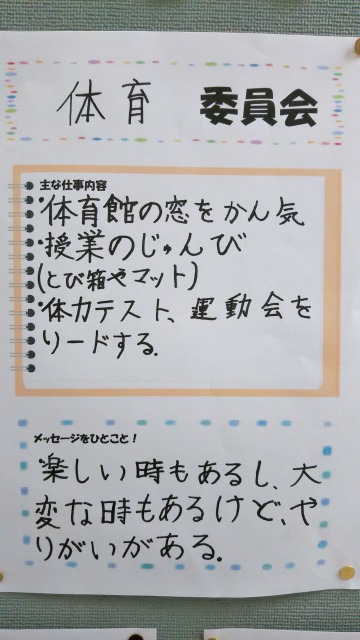 体育 委員会
主な仕事内容
・体育館の窓をかん気
・授業のじゅんび
(とび箱やマット)
・体力テスト、運動会を
リードする。
メッセージをひとこと！
楽しい時もあるし、大
変な時もあるけど、や
りがいがある。